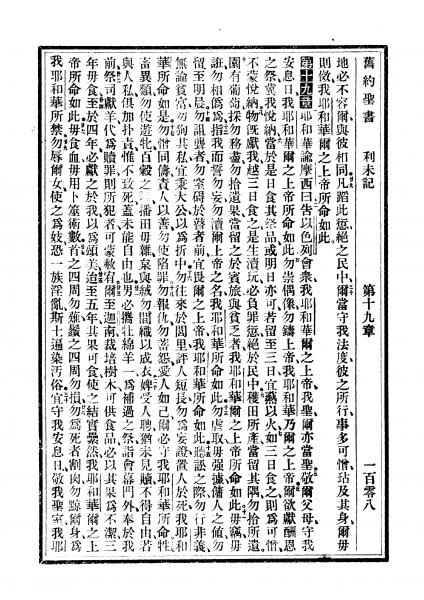 舊約聖書 利未記 第十九章 一百零八
地必不容爾與彼相同凡蹈此愆絕之民中爾當守我法度彼之所行事多可憎玷及其身爾毋
則傚我耶和華爾之上帝所命如此
第十九章 耶和華諭摩西曰告以色列會衆我耶和華爾之上帝我聖爾亦當聖敬爾父母守我
安息日我耶和華爾之上帝所命如此勿崇偶像勿鑄上帝我耶和華乃爾之上帝爾欲獻酬恩
之祭冀我悅納當於是日食其祭品或明日亦可若留至三日宜爇以火如三日食之則爲可憎
不蒙悅納物旣獻我越三日食之是生瀆玩必負罪愆絕於民中穫田所產當留其隅勿拾所遺
園有葡萄採勿務盡勿拾遺果當留之於賓旅與貧乏者我耶和華爾之上帝所命如此毋竊毋
誑勿相僞爲指我而誓勿妄勿瀆爾上帝之名我耶和華所命如此勿虐取毋強據傭人之値勿
留至明晨勿詛聾者勿窒礙於瞽者前宜寅畏爾之上帝我耶和華所命如此聽訟之際勿行非義
無論貧富勿狥其私宜秉大公以爲折中勿往來於閭里評人短長勿爲妄證置人於死我耶和
華所命如是勿憎同儕責人以善勿使陷罪勿報仇勿蓄怨愛人如己爾必守我耶和華所命牲
畜異類勿使遊牝百穀之播田毋雜枲與絨勿間織以成衣婢受人聘猶未見贖不得自由若
與人私俱加扑責惟不致死蓋未能自由也男必攜牡綿羊一爲補過之祭詣會幕門外奉於我
前祭司獻羊代爲贖罪則所犯者可蒙赦宥爾至迦南栽培樹木可供食品必以其果爲不潔三
年毋食至於四年必獻之於我以爲頌美迨至五年其果可食使之結實纍然我耶和華爾之上
帝所命如此毋食血毋用卜筮術數首之四周勿薙鬚之四周勿損勿爲死者割肉勿黥爾身爲
我耶和華所禁勿辱爾女使之爲妓恐一族淫亂斯土遍染汚俗宜守我安息日敬我聖室我耶